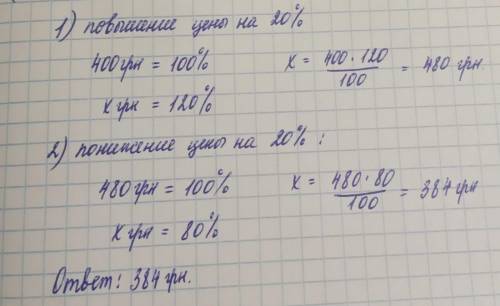 1) повышение цены на 20%
400 грн = 100%
x грн = 120%
x = 400 · 120 / 100 = 480 грн.
2) понижение цены на 20% :
480 грн = 100%
x грн = 80%
x = 480 · 80 / 100 = 384 грн
Ответ: 384 грн.